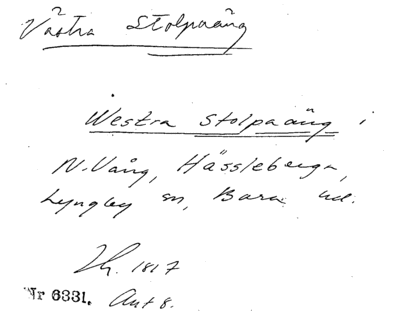 Västra Stolpaäng
Westra Stolpaäng i
N. Vång, Hässleberga,
Lyngby sn, Bara hd.
1817
Nr 6331. Akt 8.